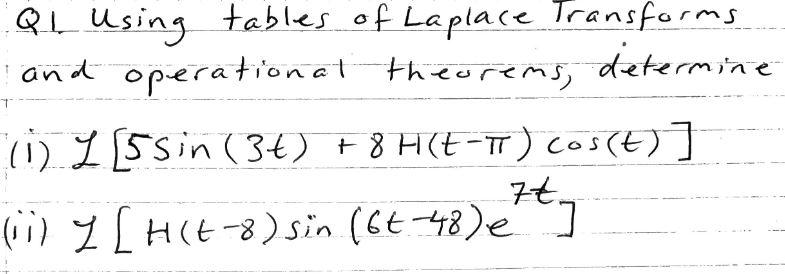 Q1. Using tables of Laplace Transforms
and operational theorems, determine
(i) ℒ[5Sin(3t) + 8H(t-π)cos(t)]
(ii) ℒ[H(t-8)sin(6t-48)e^7t]